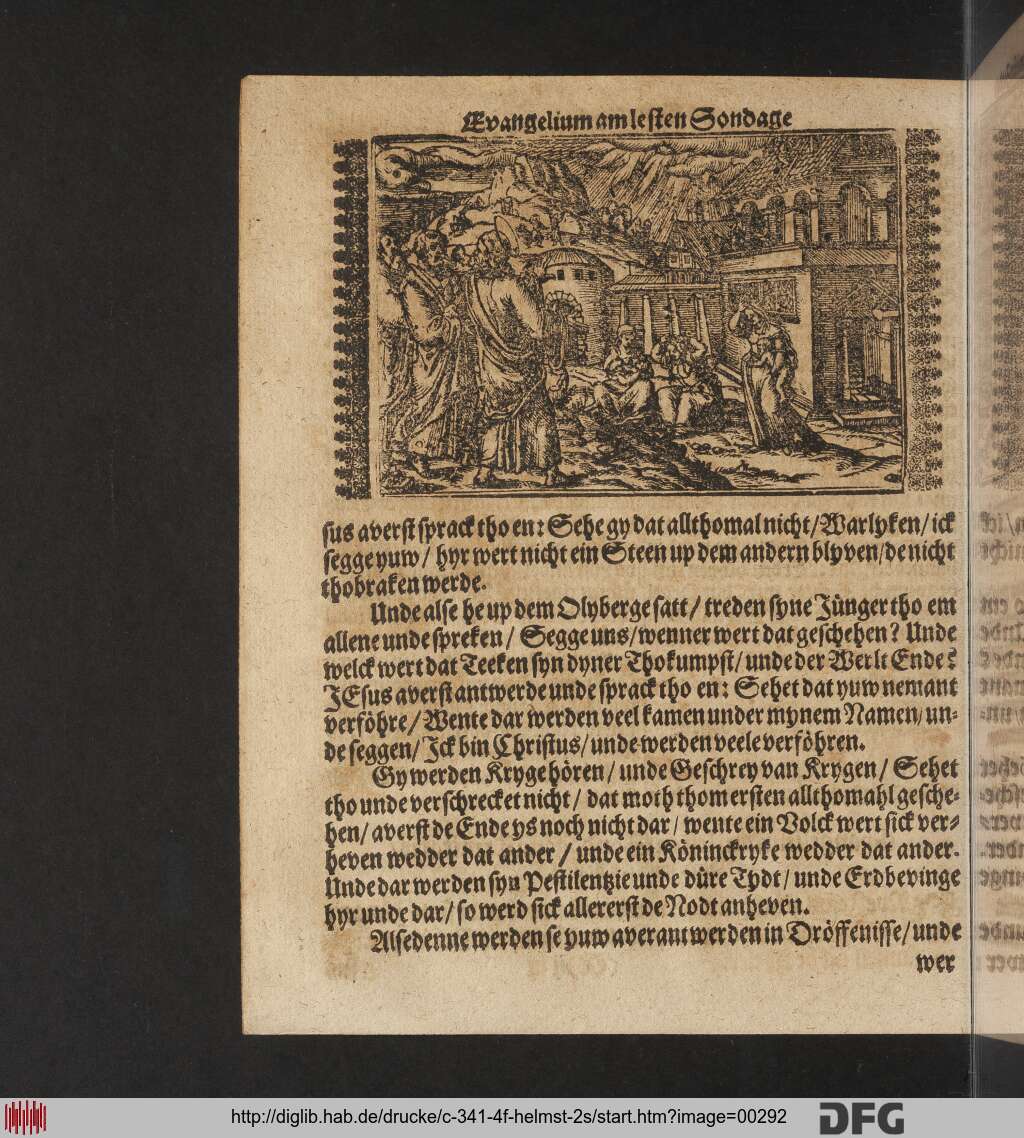 Evangelium am lesten Sondage
sus averst sprack tho en: Sehe gy dat allthomal nicht/ Warlyken/ ick
segge yuw/ hyr wert nicht ein Steen up dem andern blyven/ de nicht
thobraken werde.
Unde alse he up dem Olyberge satt/ treden syne Jünger tho em
allene unde spreken/ Segge uns/ wenner wert dat geschehen? Unde
welck wert dat Teeken syn dyner Thokumpst/ unde der Werlt Ende?
JEsus averst antwerde unde sprack tho en: Sehet dat yuw nemant
verföhre/ Wente dar werden veel kamen under mynem Namen/ un-
de seggen/ Ick bin Christus/ unde werden veele verföhren.
Gy werden Kryge hören/ unde Geschrey van Krygen/ Sehet
tho unde verschrecket nicht/ dat moth thom ersten allthomahl gesche-
hen/ averst de Ende ys noch nicht dar/ wente ein Volck wert sick ver-
heven wedder dat ander/ unde ein Köninckryke wedder dat ander.
Unde dar werden syn Pestilentzie unde düre Tydt/ unde Erdbevinge
hyr unde dar/ so werd sick allererst de Nodt anheven.
Alsedenne werden se yuw averantwerden in Dröffenisse/ unde
wer
http://diglib.hab.de/drucke/c-341-4f-helmst-2s/start.htm?image=00292
DFG